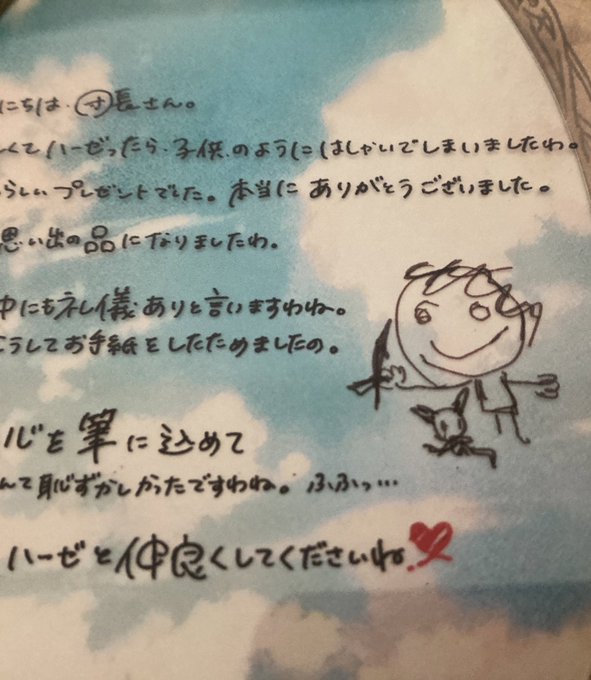 にちは、団長さん。
くてハーゼったら、子供のようにはしゃいでしまいましたわ。
らしいプレゼントでした。本当にありがとうございました。
思い出の品になりましたわ。
中にも礼儀ありと言いますわね。
こうしてお手紙をしたためましたの。
心を筆に込めて
んて恥ずかしかったですわね。ふふっ…
ハーゼと仲良くしてくださいね